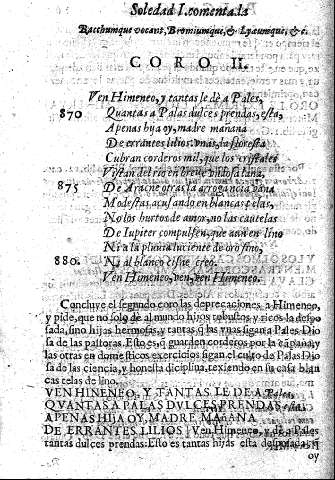 Soledad I. comenta.la
Bacchumque vocant, Bromiumque, & Lyaumque, & c.
CORO II.
Ven Himeneo, y tantas le dè a Pales,
870 Quantas a Palas dulces prendas, esta,
Apenas hija oy, madre mañana
De errantes lilios: mas, la floresta
Cubran corderos mil, que los cristales
Vistan del rio en breve undosa lana,
875 De Aracne otras la arrogancia vana
Modestas acusando en blancas telas,
No los hurtos de amor, no las cautelas
De Iupiter compulsen, que aun en lino
Ni a la pluvia luciente de oro fino,
880. Ni al blanco cisne creo.
Ven Himeneo, ven, ven Himeneo.
Concluye el segundo coro las deprecaciones a Himeneo,
y pide, que no solo dé al mundo hijos robustos, y ricos la despo
sada, sino hijas hermosas, y tantas, q̃ las vnas sigan a Pales Dio
sa de las pastoras. Esto es, q̃ guarden corderos por la capaña, y
las otras en domesticos exercicios sigan el curso de Palas Dio
sa de las ciencia, y honesta diciplina, texiendo en su casa blan
cas telas de lino.
VEN HIMENEO, Y TANTAS LE DE A Pales
QVANTAS A PALAS DVLCES PRENDAS esta
APENAS HIJA OY, MADRE MAÑANA
DE ERRANTES LILIOS: Ven Himeneo, y dè a Pales
tantas dulces prendas. Esto es tantas hijas esta desposada, q̃
oy